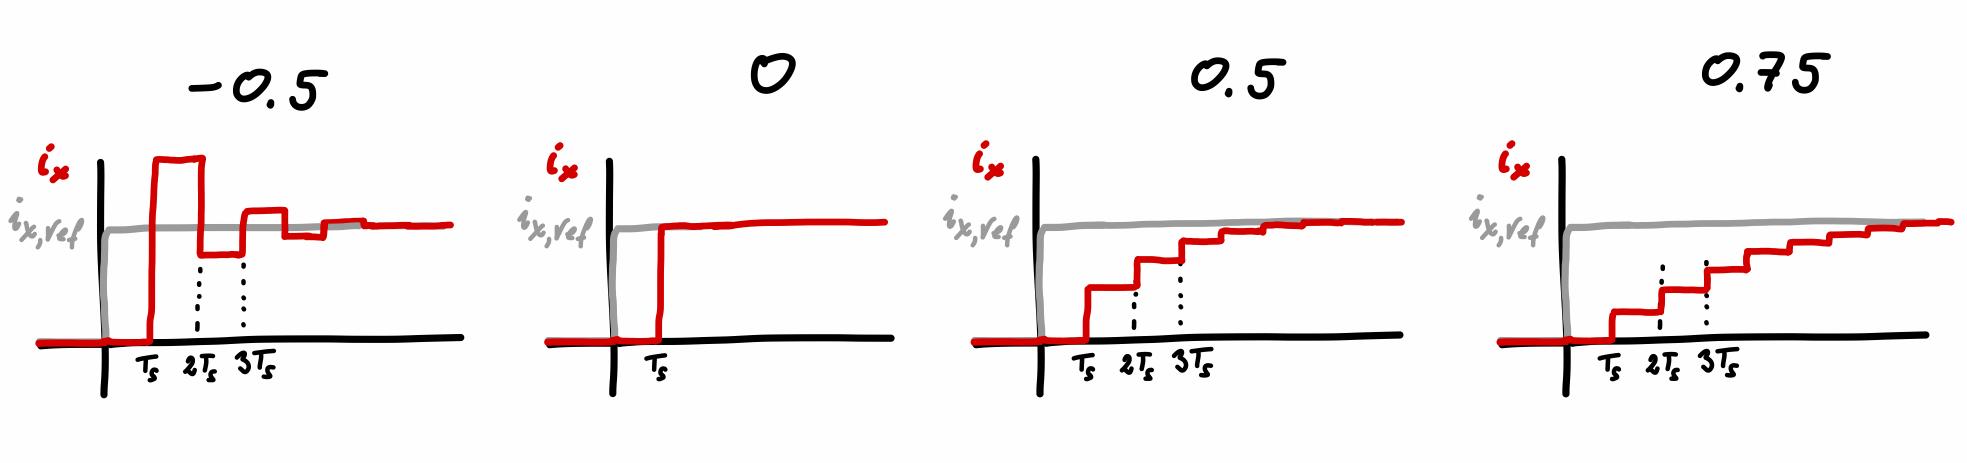 -0.5
0
0.5
0.75
i_x
i_x,ref
T_s 2T_s 3T_s
i_x
i_x,ref
T_s
i_x
i_x,ref
T_s 2T_s 3T_s
i_x
i_x,ref
T_s 2T_s 3T_s